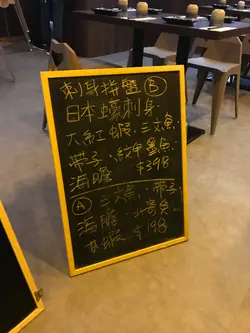 刺身拼盤 Ⓑ
日本蠔刺身
大紅蝦．三文魚．
帶子．紋甲墨魚．
海膽 $398
Ⓐ 三文魚．帶子．
海膽．北寄貝
甘蝦 $198